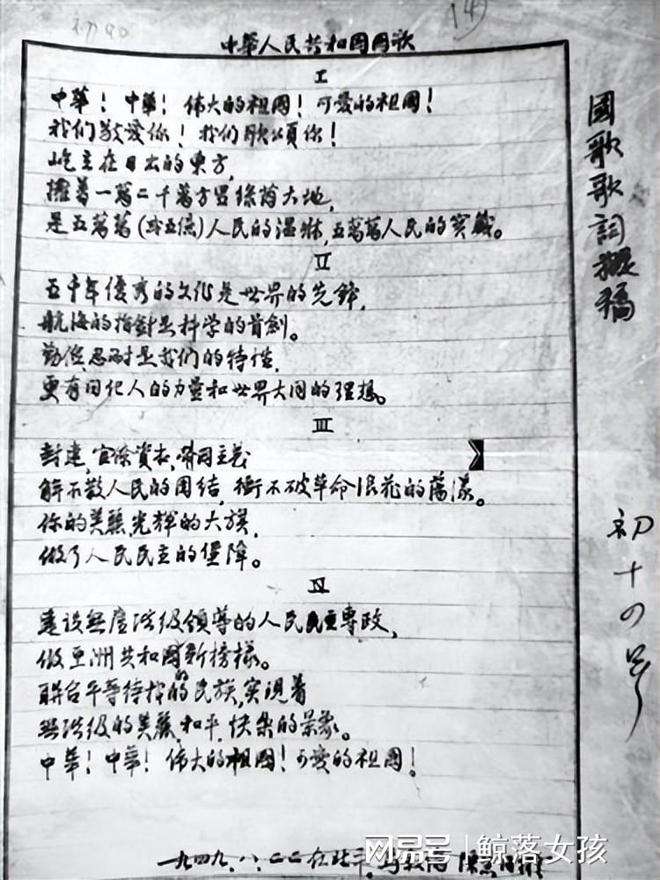 初90
14
中華人民共和国国歌
I
中華！中華！偉大的祖國！可愛的祖國！
我们敬爱你！我们歌頌你！
屹立在日出的東方，
擁着一萬二千萬方里綠蔭大地，
是五萬萬(或五億)人民的温牀，五萬萬人民的寳藏。
II
五千年優秀的文化是世界的先鋒，
航海的指針是科学的首創。
勤俭忍耐是我们的特性，
更有同化人的力量和世界大同的理想。
III
封建，官僚資本，帝国主义
解不散人民的团结，衝不破革命浪花的蕩漾。
你的美麗光輝的大旗，
做了人民民主的堡障。
IV
建设無産階级領導的人民民主專政，
做亚洲共和國新榜樣。
联合平等待我的民族，实现着
無階级的美麗，和平，快樂的景象。
中華！中華！偉大的祖國！可愛的祖國！
一九四九、八、二二在北平
國歌歌詞擬稿
初十四号
搜狐号@鲸落女孩